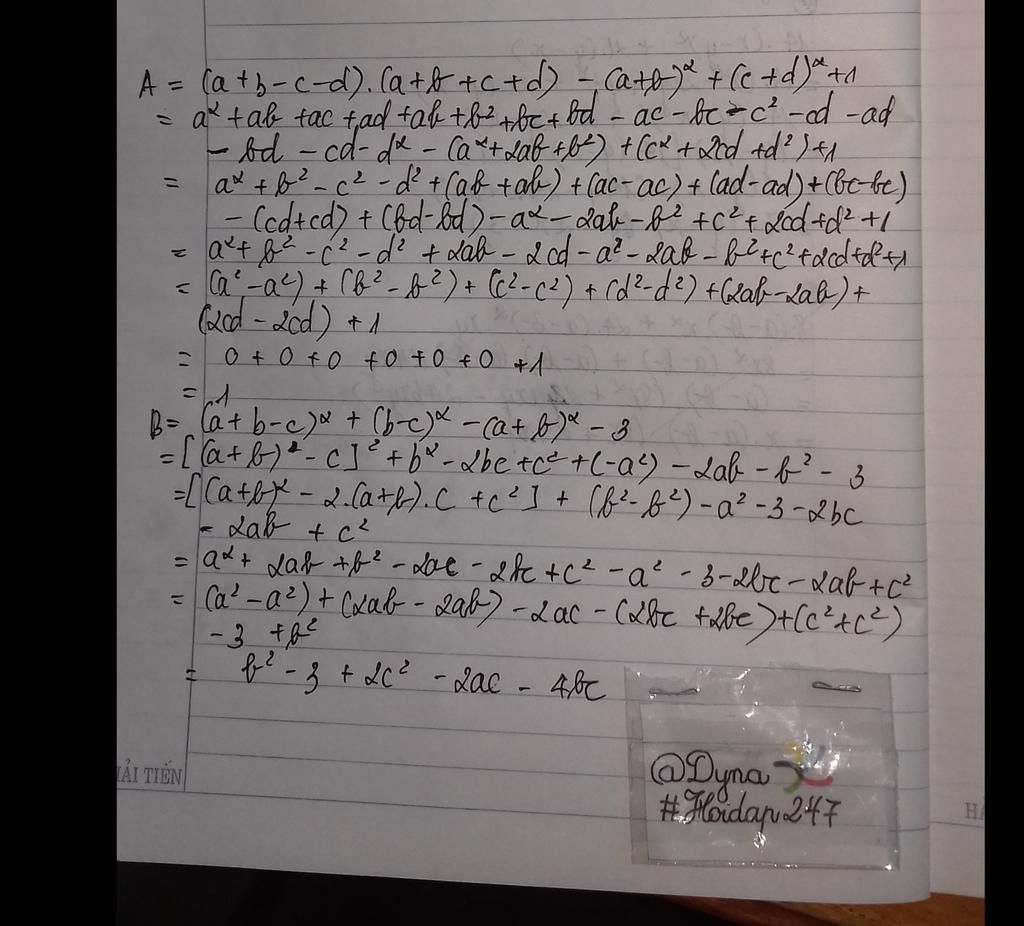 A = (a+b-c-d).(a+b+c+d) - (a+b)² + (c+d)² +1
= a² + ab + ac + ad + ab + b² + bc + bd - ac - bc - c² - cd - ad
- bd - cd - d² - (a² + 2ab + b²) + (c² + 2cd + d²) + 1
= a² + b² - c² - d² + (ab + ab) + (ac - ac) + (ad - ad) + (bc - bc)
- (cd + cd) + (bd - bd) - a² - 2ab - b² + c² + 2cd + d² + 1
= a² + b² - c² - d² + 2ab - 2cd - a² - 2ab - b² + c² + 2cd + d² + 1
= (a² - a²) + (b² - b²) + (c² - c²) + (d² - d²) + (2ab - 2ab) +
(2cd - 2cd) + 1
= 0 + 0 + 0 + 0 + 0 + 0 + 1
= 1
B = (a + b - c)² + (b - c)² - (a + b)² - 3
= [(a + b)² - c]² + b² - 2bc + c² + (-a²) - 2ab - b² - 3
= [(a + b)² - 2.(a + b).c + c²] + (b² - b²) - a² - 3 - 2bc
- 2ab + c²
= a² + 2ab + b² - 2ac - 2bc + c² - a² - 3 - 2bc - 2ab + c²
= (a² - a²) + (2ab - 2ab) - 2ac - (2bc + 2bc) + (c² + c²)
- 3 + b²
= b² - 3 + 2c² - 2ac - 4bc
@Dyna
#Hoidap247
ẢI TIẾN
HẢ